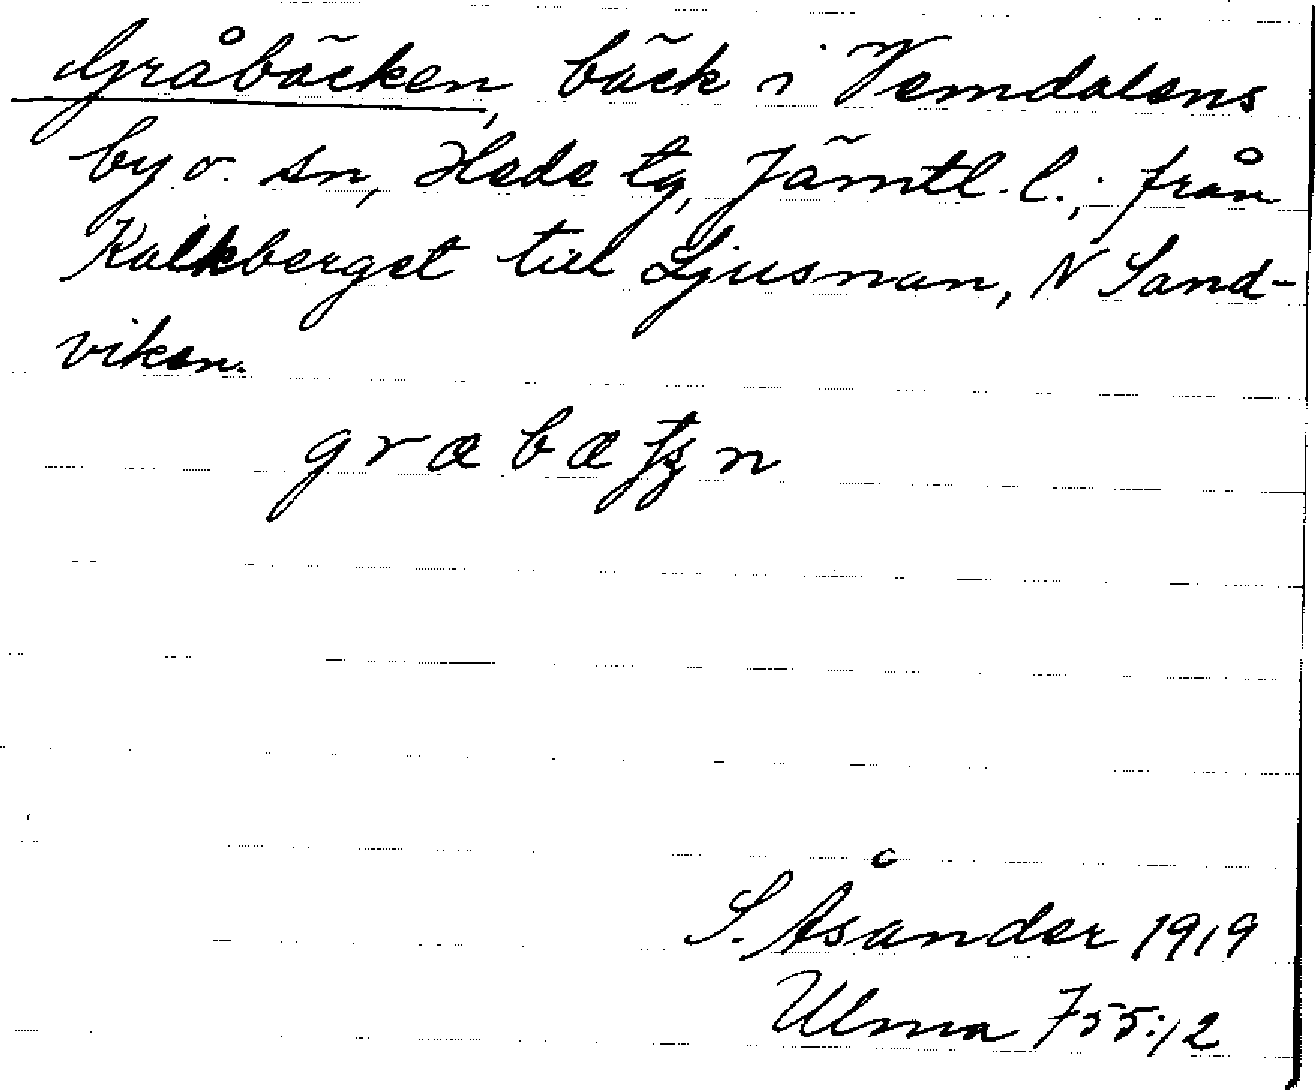 Gråbäcken, bäck i Vemdalens
by o. sn, Hede tg, Jämtl. l.; från
Kalkberget till Ljusnan, N Sand-
viken.
S. Åsander 1919
Ulma 755:12